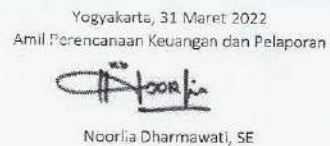 Yogyakarta, 31 Maret 2022
Amil Perencanaan Keuangan dan Pelaporan
Noorlia
Noorlia Dharmawati, SE